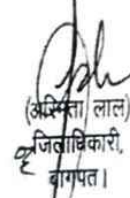 (अस्मिता लाल)
जिलाधिकारी,
बागपत।